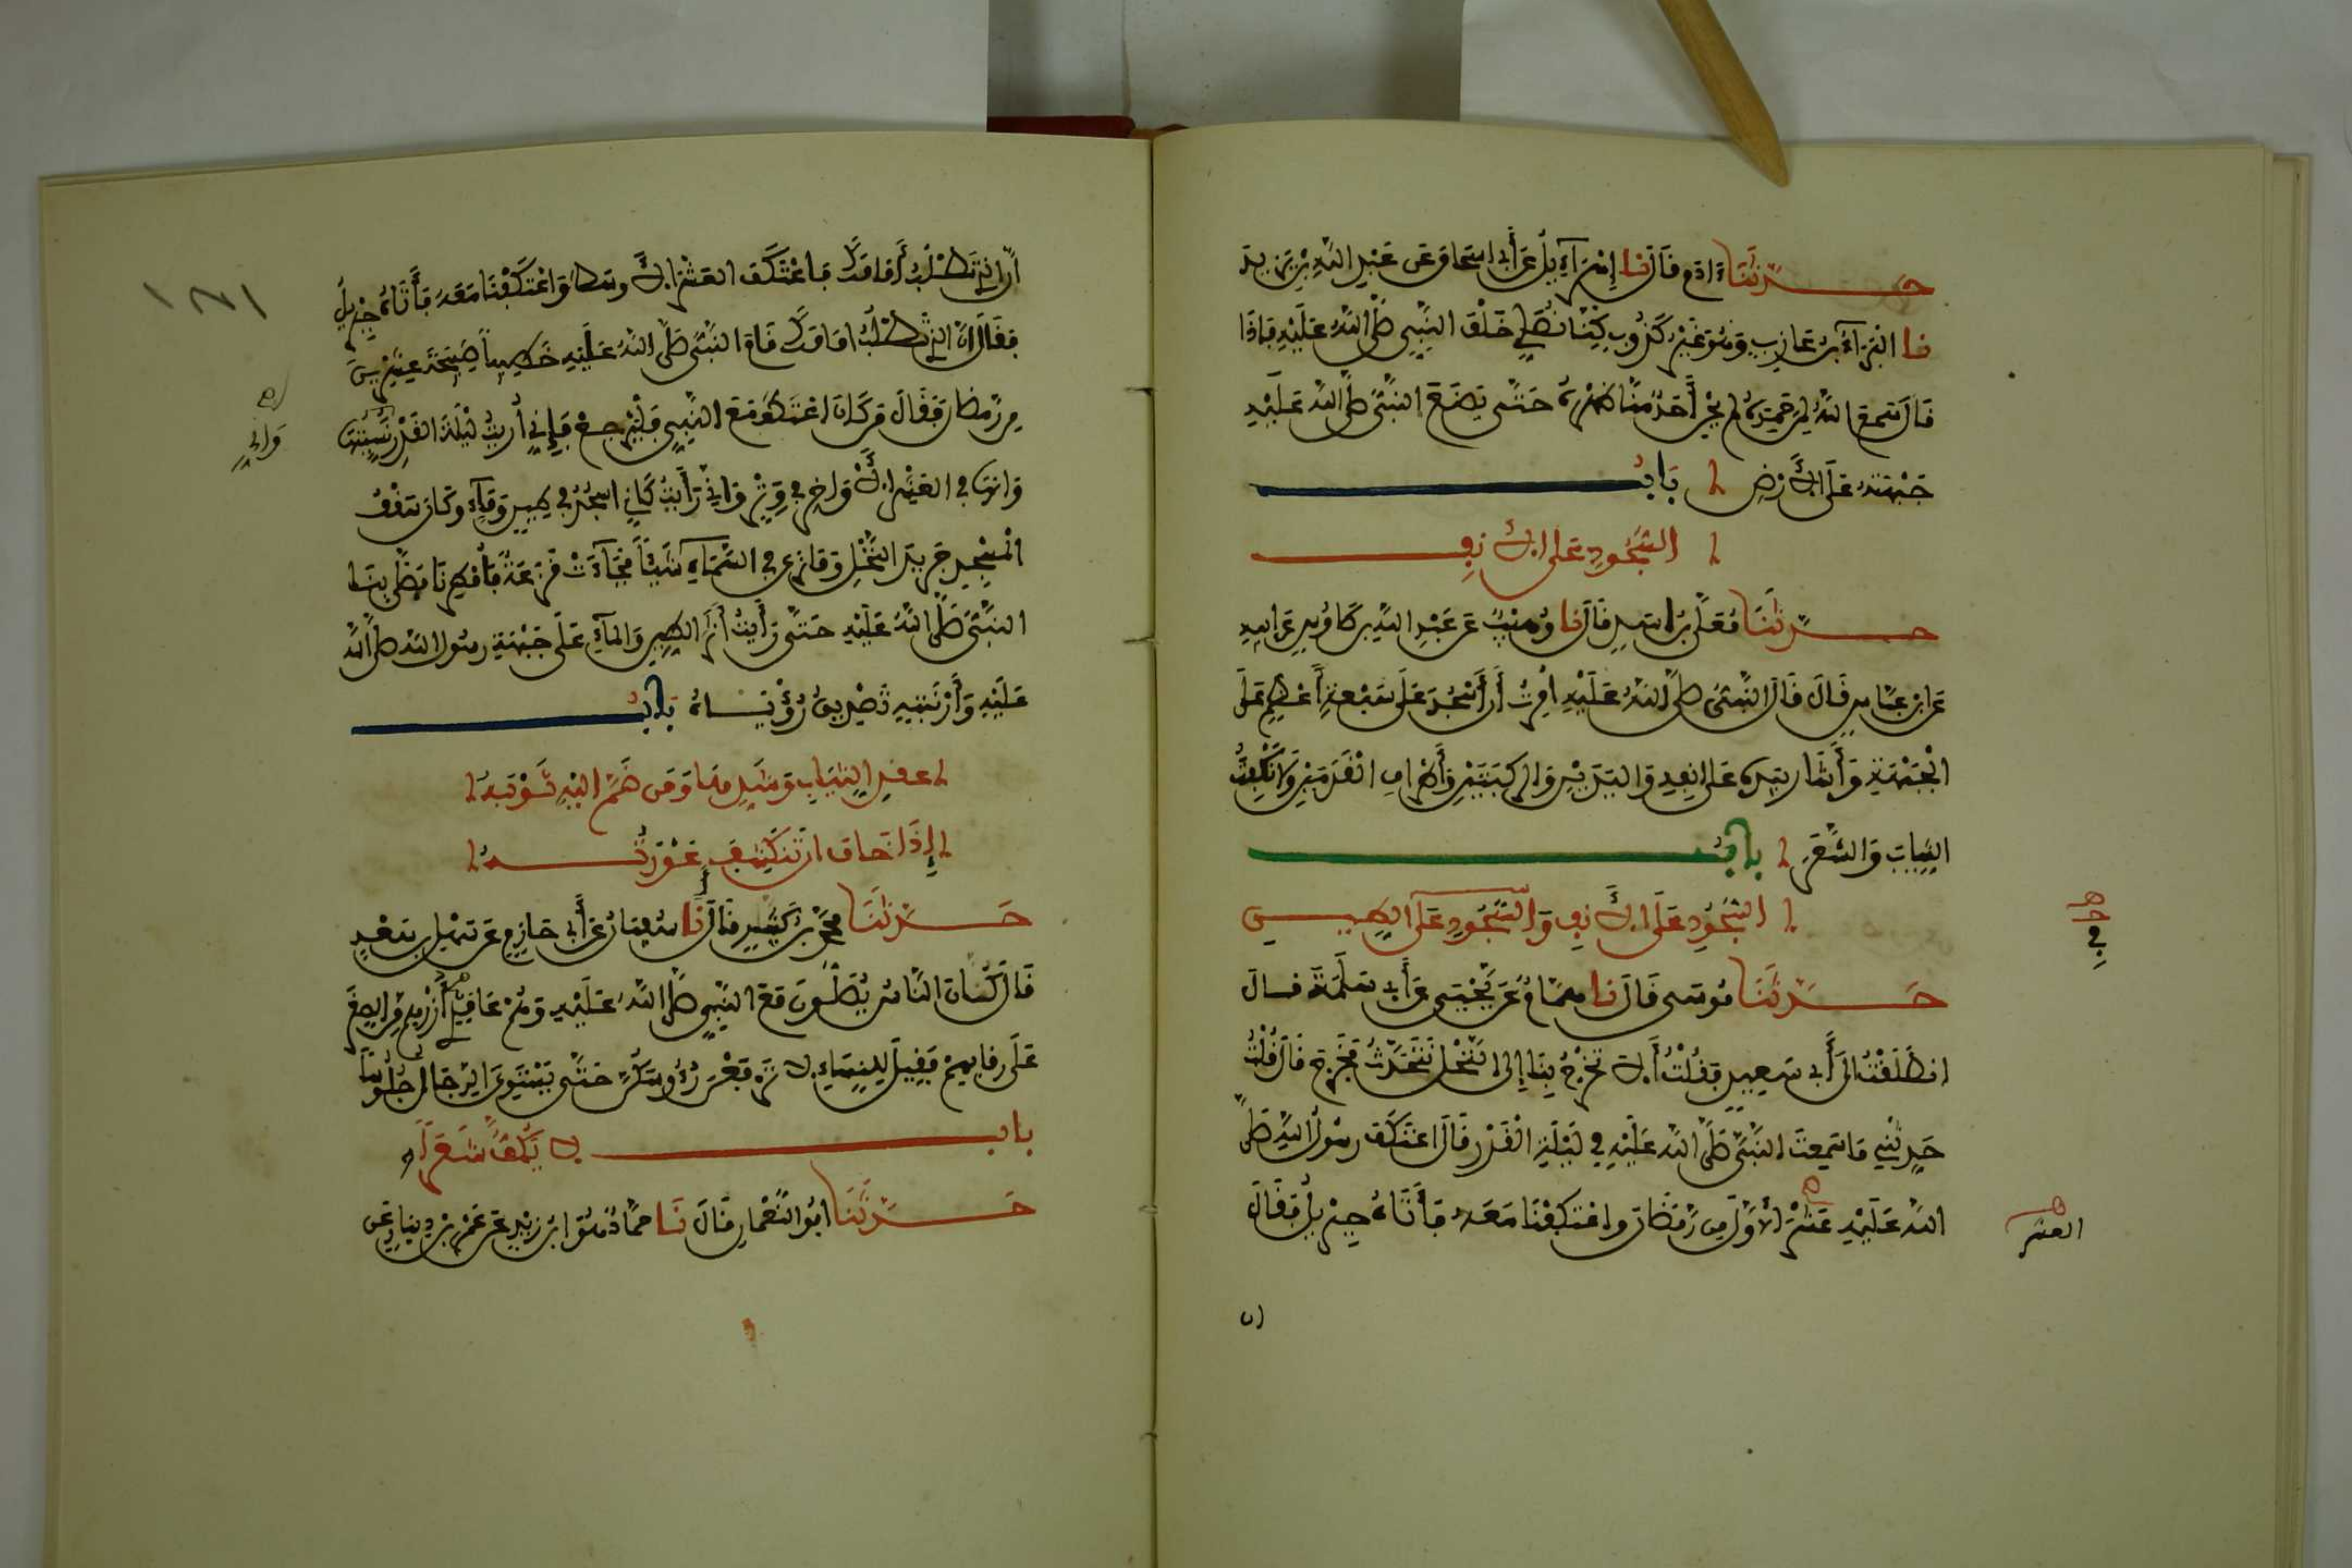 حَدَّثَنَا ءَادَمُ قَالَ نا إِسْرَآءِيلُ عَنْ أَبِي إِسْحَاقَ عَنْ عَبْدِ اللَّهِ بْنِ يَزِيدَ
نا الْبَرَآءُ بْنُ عَازِبٍ وَهُوَ غَيْرُ كَذُوبٍ كُنَّا نُصَلِّي خَلْفَ النَّبِيِّ صَلَّى اللَّهُ عَلَيْهِ فَإِذَا
قَالَ سَمِعَ اللَّهُ لِمَنْ حَمِدَهُ لَمْ يَحْنِ أَحَدٌ مِنَّا ظَهْرَهُ حَتَّى يَضَعَ النَّبِيُّ صَلَّى اللَّهُ عَلَيْهِ
جَبْهَتَهُ عَلَى الْأَرْضِ بَابُ
السُّجُودِ عَلَى الْأَنْفِ
حَدَّثَنَا مُعَلَّى بْنُ أَسَدٍ قَالَ نا وُهَيْبٌ عَنْ عَبْدِ اللَّهِ بْنِ طَاوُسٍ عَنْ أَبِيهِ
عَنِ ابْنِ عَبَّاسٍ قَالَ قَالَ النَّبِيُّ صَلَّى اللَّهُ عَلَيْهِ أُمِرْتُ أَنْ أَسْجُدَ عَلَى سَبْعَةِ أَعْظُمٍ عَلَى
الْجَبْهَةِ وَأَشَارَ بِيَدِهِ عَلَى أَنْفِهِ وَالْيَدَيْنِ وَالرُّكْبَتَيْنِ وَأَطْرَافِ الْقَدَمَيْنِ وَلَا نَكْفِتُ
الثِّيَابَ وَالشَّعَرَ بَابُ
السُّجُودِ عَلَى الْأَنْفِ وَالسُّجُودِ عَلَى الطِّينِ
في
حَدَّثَنَا مُوسَى قَالَ نا هَمَّامٌ عَنْ يَحْيَى عَنْ أَبِي سَلَمَةَ قَالَ
انْطَلَقْتُ إِلَى أَبِي سَعِيدٍ فَقُلْتُ أَلَا تَخْرُجُ بِنَا إِلَى النَّخْلِ نَتَحَدَّثُ فَخَرَجَ قَالَ قُلْتُ
حَدِّثْنِي مَا سَمِعْتَ النَّبِيَّ صَلَّى اللَّهُ عَلَيْهِ فِي لَيْلَةِ الْقَدْرِ قَالَ اعْتَكَفَ رَسُولُ اللَّهِ صَلَّى
اللَّهُ عَلَيْهِ عَشْرَ الْأُوَلِ مِنْ رَمَضَانَ وَاعْتَكَفْنَا مَعَهُ فَأَتَاهُ جِبْرِيلُ فَقَالَ
العشر
إِنَّ الَّذِي تَطْلُبُ أَمَامَكَ فَاعْتَكَفَ الْعَشْرَ الْأَوْسَطَ وَاعْتَكَفْنَا مَعَهُ فَأَتَاهُ جِبْرِيلُ
فَقَالَ إِنَّ الَّذِي تَطْلُبُ أَمَامَكَ قَامَ النَّبِيُّ صَلَّى اللَّهُ عَلَيْهِ خَطِيباً صَبِيحَةَ عِشْرِينَ
مِنْ رَمَضَانَ فَقَالَ مَنْ كَانَ اعْتَكَفَ مَعَ النَّبِيِّ فَلْيَرْجِعْ فَإِنِّي أُرِيتُ لَيْلَةَ الْقَدْرِ نُسِّيتُهَا
وَإِنِّي
وَإِنَّهَا فِي الْعَشْرِ الْأَوَاخِرِ فِي وِتْرٍ وَإِنِّي رَأَيْتُ كَأَنِّي أَسْجُدُ فِي طِينٍ وَمَآءٍ وَكَانَ سَقْفُ
الْمَسْجِدِ جَرِيدَ النَّخْلِ وَمَا نَرَى فِي السَّمَآءِ شَيْئاً فَجَآءَتْ قَزَعَةٌ فَأُمْطِرْنَا فَصَلَّى بِنَا
النَّبِيُّ صَلَّى اللَّهُ عَلَيْهِ حَتَّى رَأَيْتُ أَثَرَ الطِّينِ وَالْمَآءِ عَلَى جَبْهَةِ رَسُولِ اللَّهِ صَلَّى اللَّهُ
عَلَيْهِ وَأَرْنَبَتِهِ تَصْدِيقُ رُؤْيَاهُ بَابُ
عَقْدِ الثِّيَابِ وَشَدِّهَا وَمَنْ ضَمَّ إِلَيْهِ ثَوْبَهُ
إِذَا خَافَ أَنْ تَنْكَشِفَ عَوْرَتُهُ
حَدَّثَنَا مُحَمَّدُ بْنُ كَثِيرٍ قَالَ أَنَا سُفْيَانُ عَنْ أَبِي حَازِمٍ عَنْ سَهْلِ بْنِ سَعْدٍ
قَالَ كَانَ النَّاسُ يُصَلُّونَ مَعَ النَّبِيِّ صَلَّى اللَّهُ عَلَيْهِ وَهُمْ عَاقِدِي أُزْرِهِمْ مِنَ الصِّغَرِ
عَلَى رِقَابِهِمْ فَقِيلَ لِلنِّسَاءِ لَا تَرْفَعْنَ رُءُوسَكُنَّ حَتَّى يَسْتَوِيَ الرِّجَالُ جُلُوساً
بَابُ لَا يَكُفُّ شَعَراً
حَدَّثَنَا أَبُو النُّعْمَانِ قَالَ نَا حَمَّادٌ هُوَ ابْنُ زَيْدٍ عَنْ عَمْرِو بْنِ دِينَارٍ عَنْ